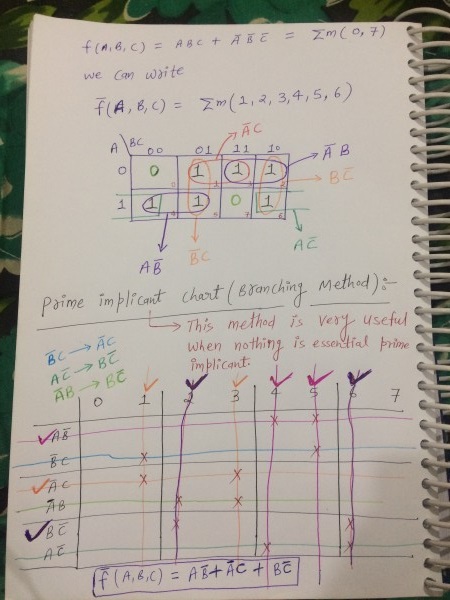 f(A,B,C) = ABC + A̅ B̅ C̅ = Σm(0,7)
we can write
f̅(A,B,C) = Σm(1,2,3,4,5,6)
A̅C
A BC 00 01 11 10
A̅ B
0 0 1 1 1 1 3 2
BC̅
1 1 4 1 5 0 7 1 6
AC̅
AB̅ B̅C
Prime implicant chart (Branching Method):-
→ This method is very useful
B̅C → A̅C when nothing is essential prime
AC̅ → BC̅ implicant.
A̅B → BC̅
0 1 2 3 4 5 6 7
AB̅ × ×
B̅C × ×
A̅C × ×
A̅B × ×
BC̅ × ×
AC̅ × ×
f̅(A,B,C) = AB̅ + A̅C + BC̅